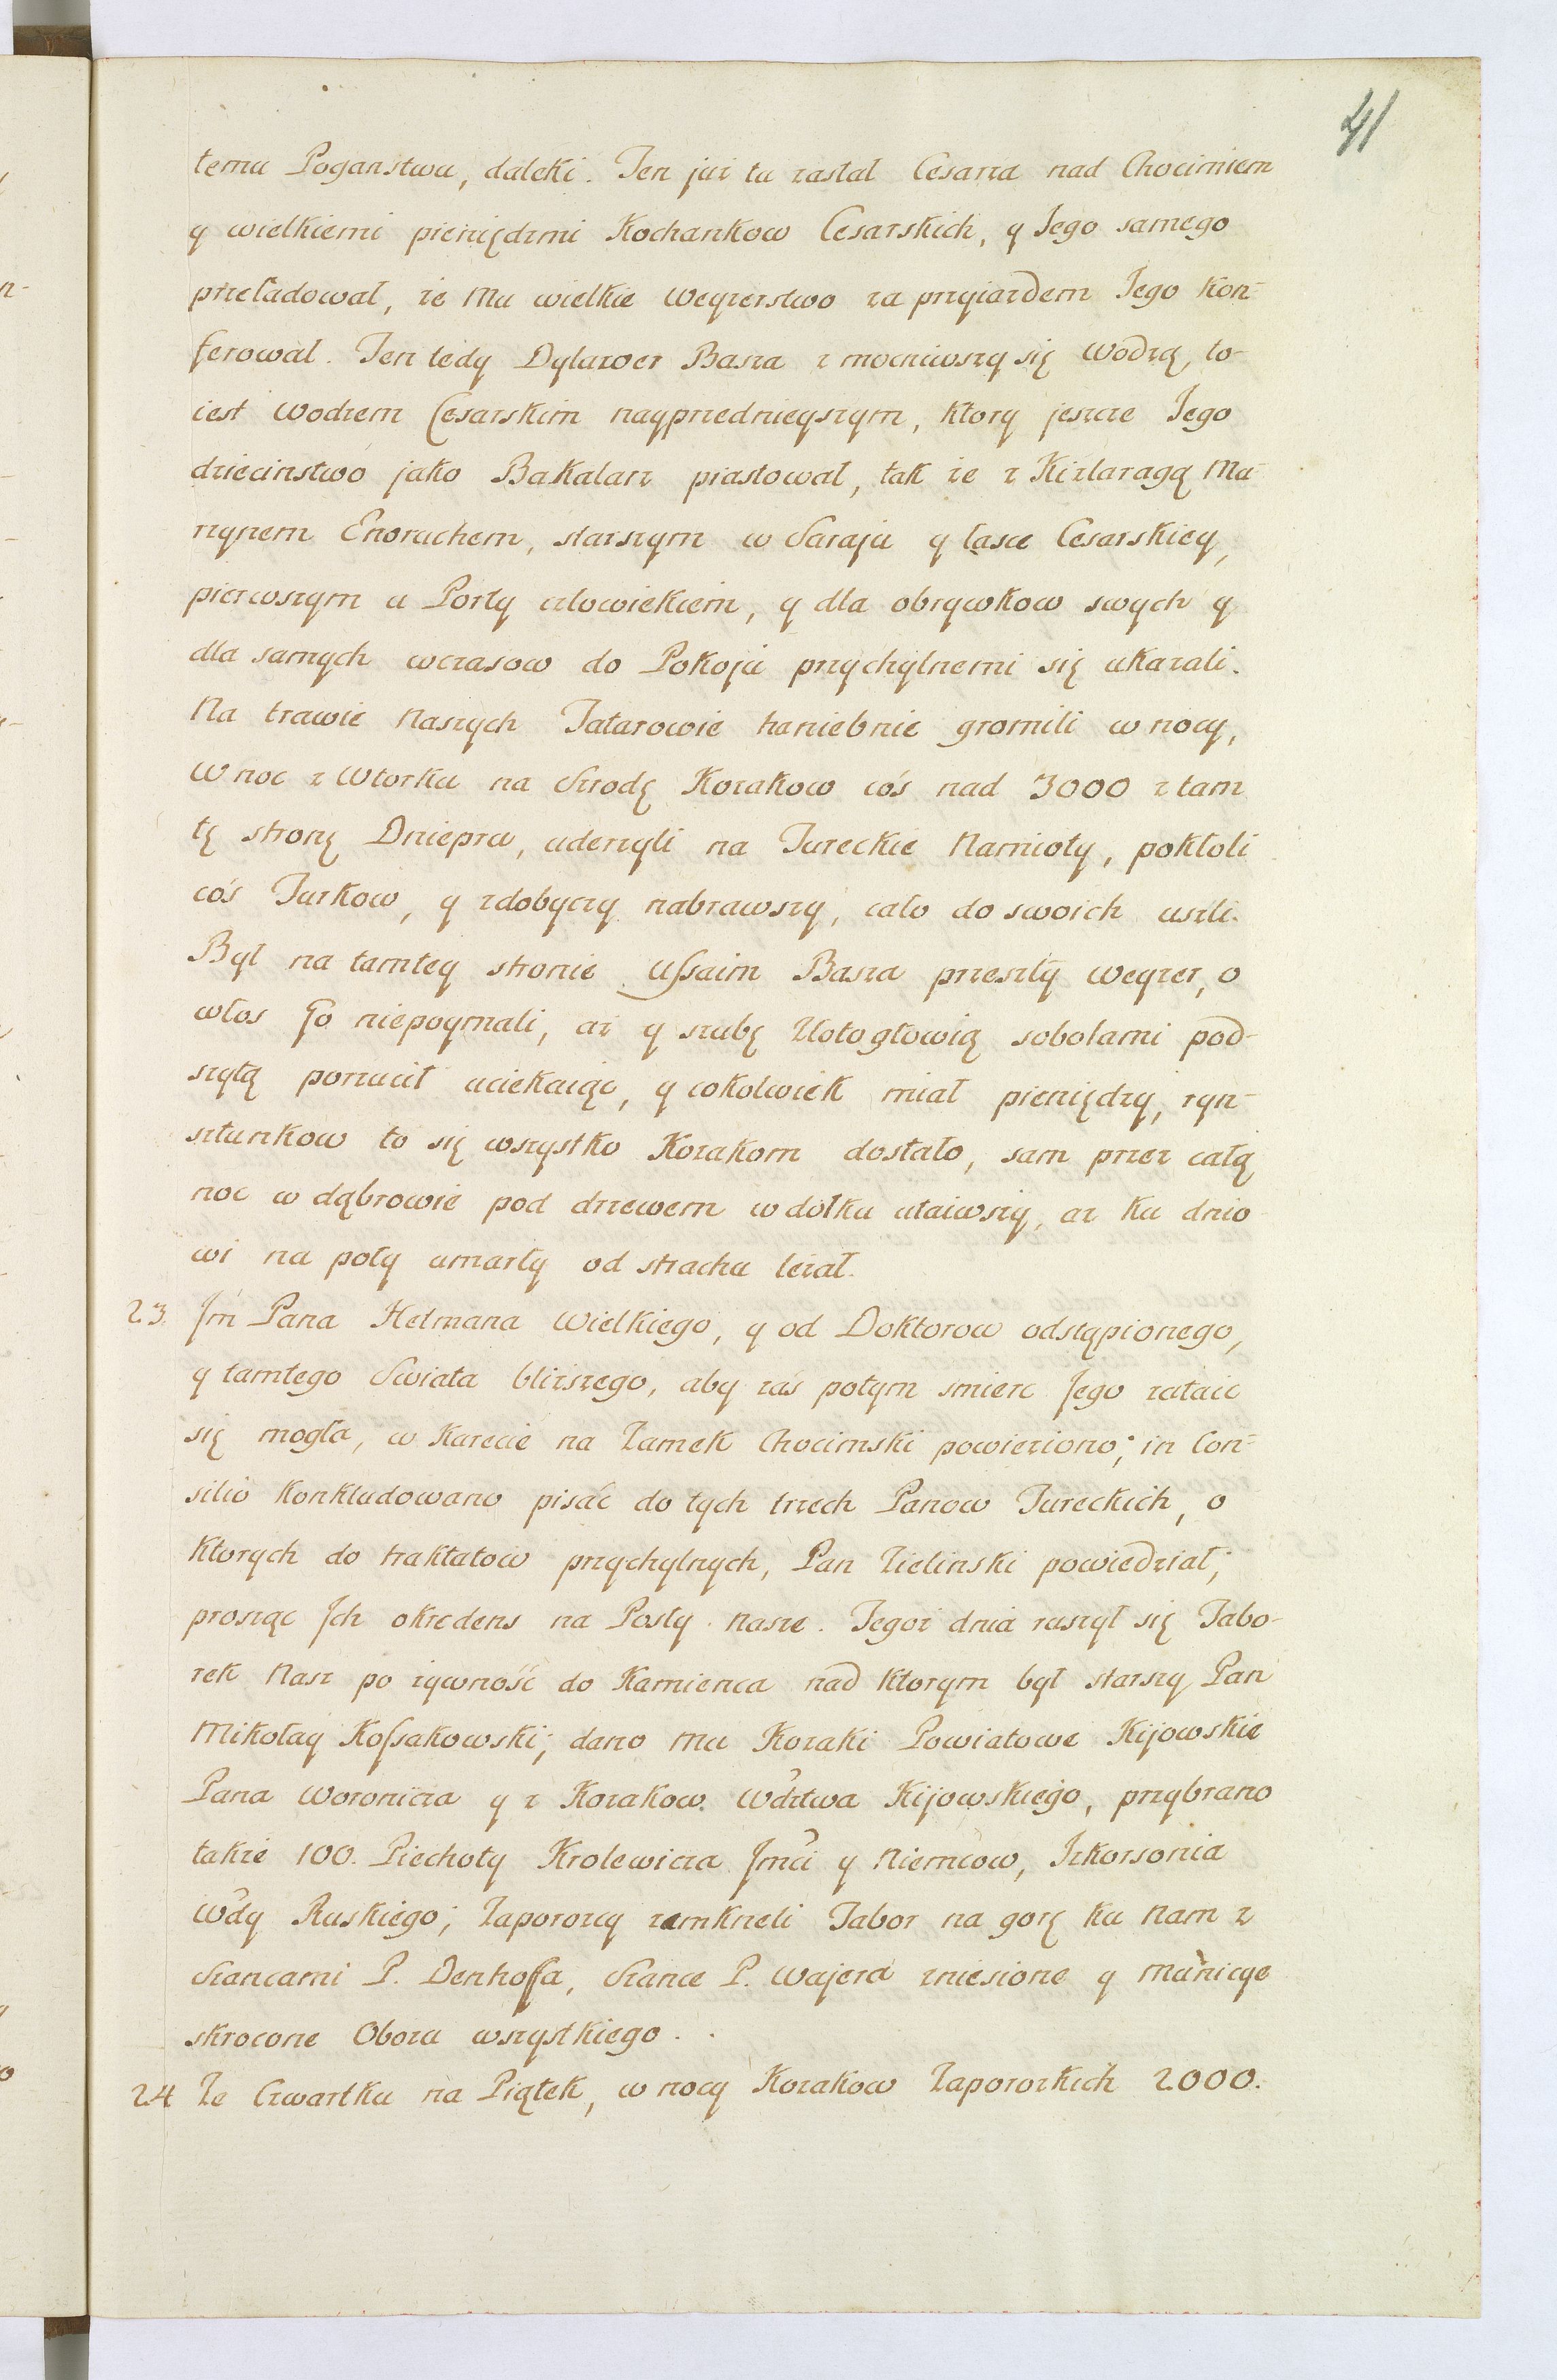 41
temu Poganstwu, daleki. Ten juz tu zastał Cesarza nad Chocimiem
y wielkiemi pieniędzmi Kochankow Cesarskich, y Jego samego
przeładował, że Mu wielkie Wezyerstwo za przyiazdem Jego kon-
ferował. Ten tedy Dylawer Basza z mocniwszy się Wodzą, to-
iest Wodzem Cesarskim nayprzednieyszym, ktory jeszcze Jego
dziecinstwo jako Bakalarz piastował, tak że z Kizlaragą Mu-
rzynem Enoruchem, starszym w Saraju y łasce Cesarskiey,
pierwszym u Porty człowiekiem, y dla obrywkow swych y
dla samych wczasow do Pokoju przychylnemi się ukazali.
Na trawie Naszych Tatarowie haniebnie gromili w nocy,
W noc z Wtorku na Srzodę Kozakow cós nad 3000 z tam
tę stronę Dniepru, uderzyli na Tureckie Namioty, pokłoli
cós Turkow, y zdobyczy nabrawszy, cało do swoich uszli.
Był na tamtey stronie Ussaim Basza przeszły Wezyer, o
włos Go niepoymali, aż y szubę Złotogłowią sobolami pod-
szytą porzucił uciekaiąc, y cokolwiek miał pieniędzy, ryn-
sztunkow to się wszystko Kozakom dostało, sam przez całą
noc w dąbrowie pod drzewem w dołku utaiwszy, aż ku dnio
wi na poły umarły od strachu leżał.
23. Jm̃ Pana Hetmana Wielkiego, y od Doktorow odstąpionego,
y tamtego Swiata bliższego, aby zaś potym smierc Jego zataic
się mogła, w Karecie na Zamek Chocimski powieziono; in Con-
silio konkludowano pisać do tych trzech Panow Tureckich, o
Ktorych do traktatow przychylnych, Pan Zielinski powiedział;
prosząc Jch okredens na Posły nasze. Tegoż dnia ruszył się Tabo-
rek Nasz po żywność do Kamienca nad ktorym był starszy Pan
Mikołay Kossakowski; dano Mu Kozaki Powiatowe Kijowskie
Pana Woronicza y z Kozakow Wdztwa Kijowskiego, przybrano
takze 100. Piechoty Krolewicza Jmci y Niemcow, Szkorsonia
Wdy Ruskiego; Zaporozcy zemkneli Tabor na gorę ku Nam z
Szancami P. Denhoffa, Szance P. Wajera zniesione y Municye
skrocone Obozu wszystkiego.
24 Ze Czwartku na Piątek, w nocy Kozakow Zaporozkich 2000.